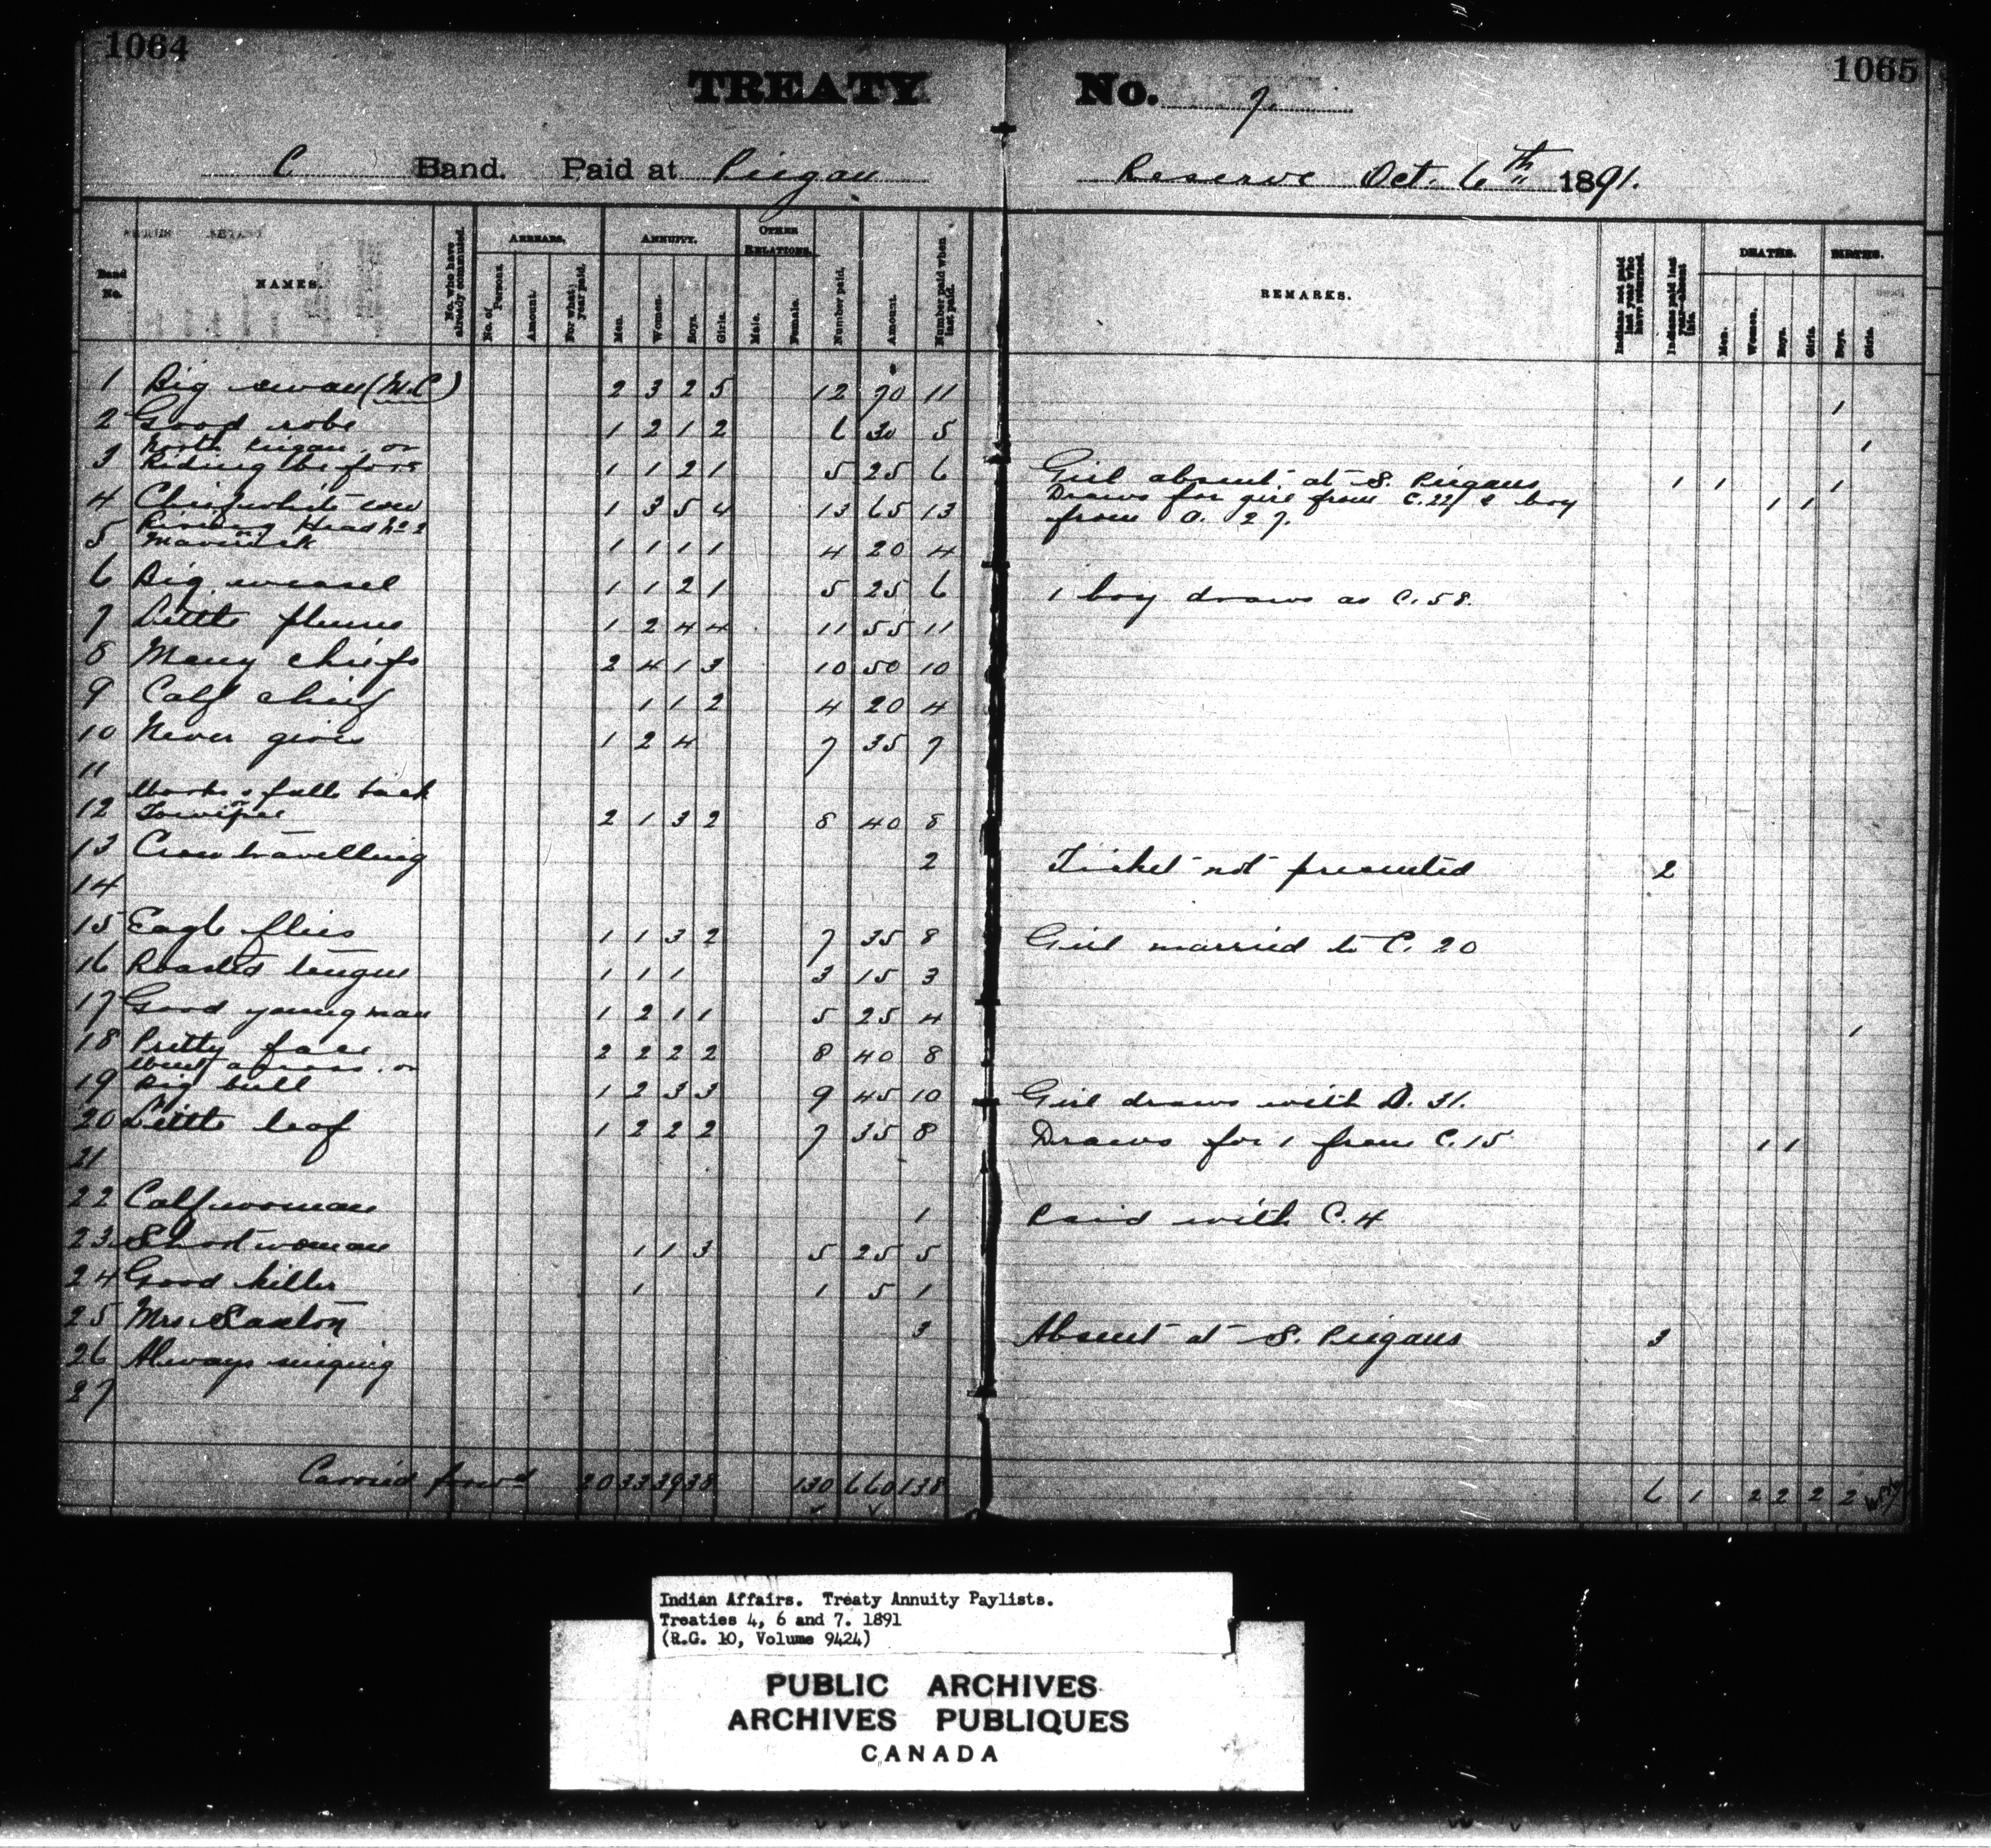 1064
1065
TREATY No. 7.
C Band. Paid at Piegan Reserve Oct. 6th 1891.
Band No. NAMES. No. who have already commuted. ARREARS. No. of Persons. Amount. For what year paid. ANNUITY. Men. Women. Boys. Girls. OTHER RELATIONS. Male. Female. Number paid. Amount. Number paid when last paid. REMARKS. Indians not paid last year who have returned. Indians paid last year—absent this. DEATHS. Men. Women. Boys. Girls. BIRTHS. Boys. Girls.
1 Big swan (M.C) 2 3 2 5 12 70 11 1
2 Good robe 1 2 1 2 6 30 5 1
North Piegan or
3 Riding before 1 1 2 1 5 25 6 Girl absent at S. Piegans 1 1 1
4 Chief white cow 1 3 5 4 13 65 13 Draws for girl from C.22 & boy 1 1
from O. 27.
Running Head No 2
5 Maverick 1 1 1 1 4 20 4
6 Big weasel 1 1 2 1 5 25 6 1 boy draws as C.58.
7 Little plume 1 2 4 4 11 55 11
8 Many chiefs 2 4 1 3 10 50 10
9 Calf chief 1 1 2 4 20 4
10 Never gives 1 2 4 7 35 7
11
falls back
12 2 1 3 2 8 40 8
13 Crow travelling 2 Ticket not presented 2
14
15 Eagle flies 1 1 3 2 7 35 8 Girl married to C. 20
16 Roasted tongue 1 1 1 3 15 3
17 Good young man 1 2 1 1 5 25 4 1
18 Pretty face 2 2 2 2 8 40 8
Went across or
19 Big bull 1 2 3 3 9 45 10 Girl draws with D. 31.
20 Little leaf 1 2 2 2 7 35 8 Draws for 1 from C.15 1 1
21
22 Calf woman 1 Paid with C.4
23 Shoot woman 1 1 3 5 25 5
24 Good killer 1 1 5 1
25 Mrs. Saxton 3 Absent at S. Piegans 3
26 Always singing
27
Carried forwd 20 33 39 38 130 660 138 6 1 2 2 2 2
Indian Affairs. Treaty Annuity Paylists.
Treaties 4, 6 and 7. 1891
(R.G. 10, Volume 9424)
PUBLIC ARCHIVES
ARCHIVES PUBLIQUES
CANADA